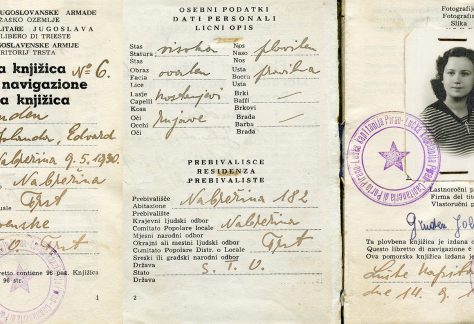 JUGOSLOVANSKE ARMADE
ŽAŠKO OZEMLJE
LITARE JUGOSLAVA
LIBERO DI TRIESTE
GOSLAVENSKE ARMIJE
RITORIJ TRSTA
a knjižica No 6.
navigazione
a knjižica
Jolanda, Edvard
Nabrežina 9.5.1930.
Nabrežina
Trst
Trst
retto contiene 96 pag. Knjižica
96 str.
1
OSEBNI PODATKI
DATI PERSONALI
LICNI OPIS
Stas
Statura
Stas
visoka
Nos
Naso
Nos
Obraz
Faccia
Lice
ovalen
Usta
Bocca
Usta
pravilna
Lasje
Capelli
Kosa
kostanjevi
Brki
Baffi
Brkovi
Oči
Occhi
Oči
rujave
Brada
Barba
Brada
PREBIVALISCE
RESIDENZA
PREBIVALISTE
Prebivališče
Abitazione
Prebivalište
Nabrežina 182
Krajevni ljudski odbor
Comitato Popolare locale
Mjesni narodni odbor
Nabrežina
Okrajni ali mestni ljudski odbor
Comitato Popolare Distr. o Locale
Sreski ili gradski narodni odbor
Trst
Država
Stato
Država
S. T. O.
2
Fotografij
Fotografia
Slika
Lastnoročni p
Firma del tito
Vlastoručni p
Gruden Jol
Ta plovbena knjižica je izdana o
Questo libretto di navigazione è
Ova pomorska knjižica je izdana
dne 14. 9. 1